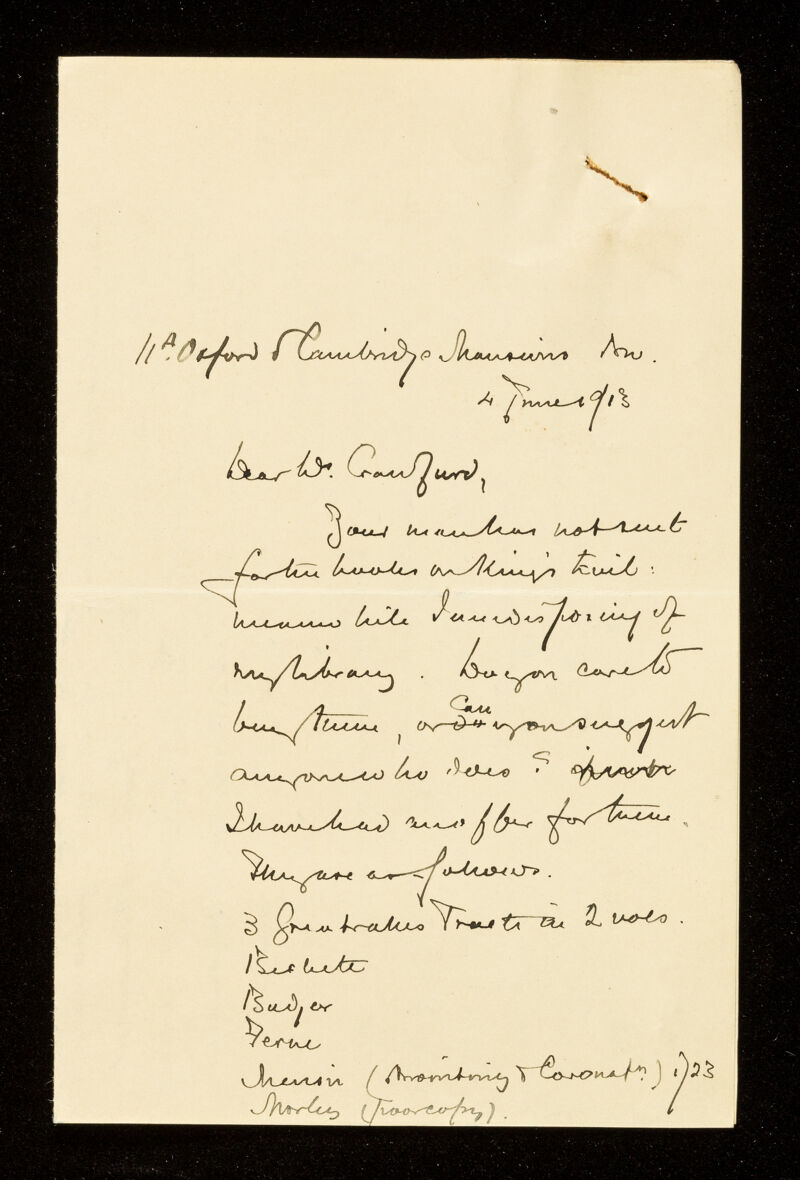 11A. Oxford & Cambridge Mansions NW.
4 June 1913
Dear Dr. Crawfurd,
Your man has not sent
for the books on King's Evil:
meanwhile I am disposing of
my library. Do you care to
buy them, or can you suggest
anyone who does?
I have had an offer for them.
They are as follows.
3 Greatrakes Tracts in 2 vols.
Beckett
Badger
Ferne
Menin (Anointing & Coronatn.) 1723
Morley (Poor copy).